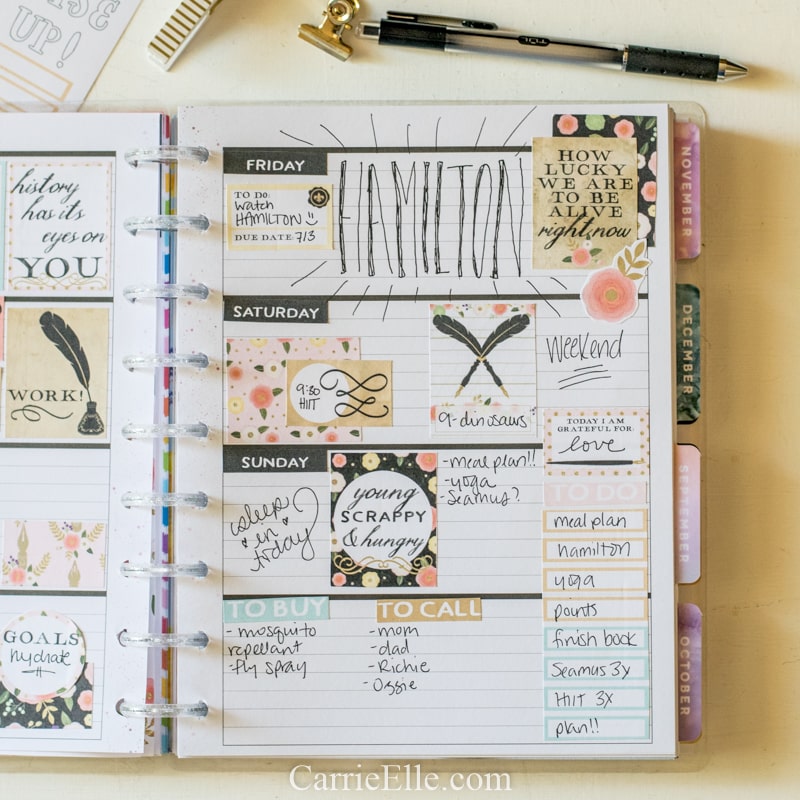 ISE
UP!
history
has its
eyes on
YOU
WORK!
GOALS
hydrate
FRIDAY
TO DO:
watch
HAMILTON
DUE DATE: 7/3
HAMILTON
HOW
LUCKY
WE ARE
TO BE
ALIVE
right now
SATURDAY
9:30
HIIT
9-dinosaurs
Weekend
TODAY I AM
GRATEFUL FOR:
love
SUNDAY
asleep
in
today
young
SCRAPPY
& hungry
-meal plan!!
-yoga
-Seamus?
TO DO
meal plan
hamilton
yoga
points
finish book
Seamus 3x
HIIT 3x
plan!!
TO BUY
- mosquito
repellant
-fly spray
TO CALL
- mom
- dad
- Richie
- Ozzie
NOVEMBER
DECEMBER
SEPTEMBER
OCTOBER
CarrieElle.com